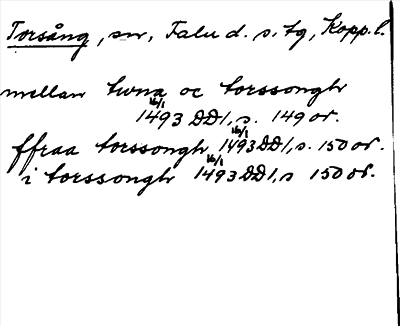 Torsång, sn, Falu d. s. tg, Kopp. l.
mellan twna oc torssongh
16/1 1493 DD1, s. 149 or.
ffraa torssongh 16/1 1493 DD1, s. 150 or.
i torssongh 16/1 1493 DD1, s 150 or.